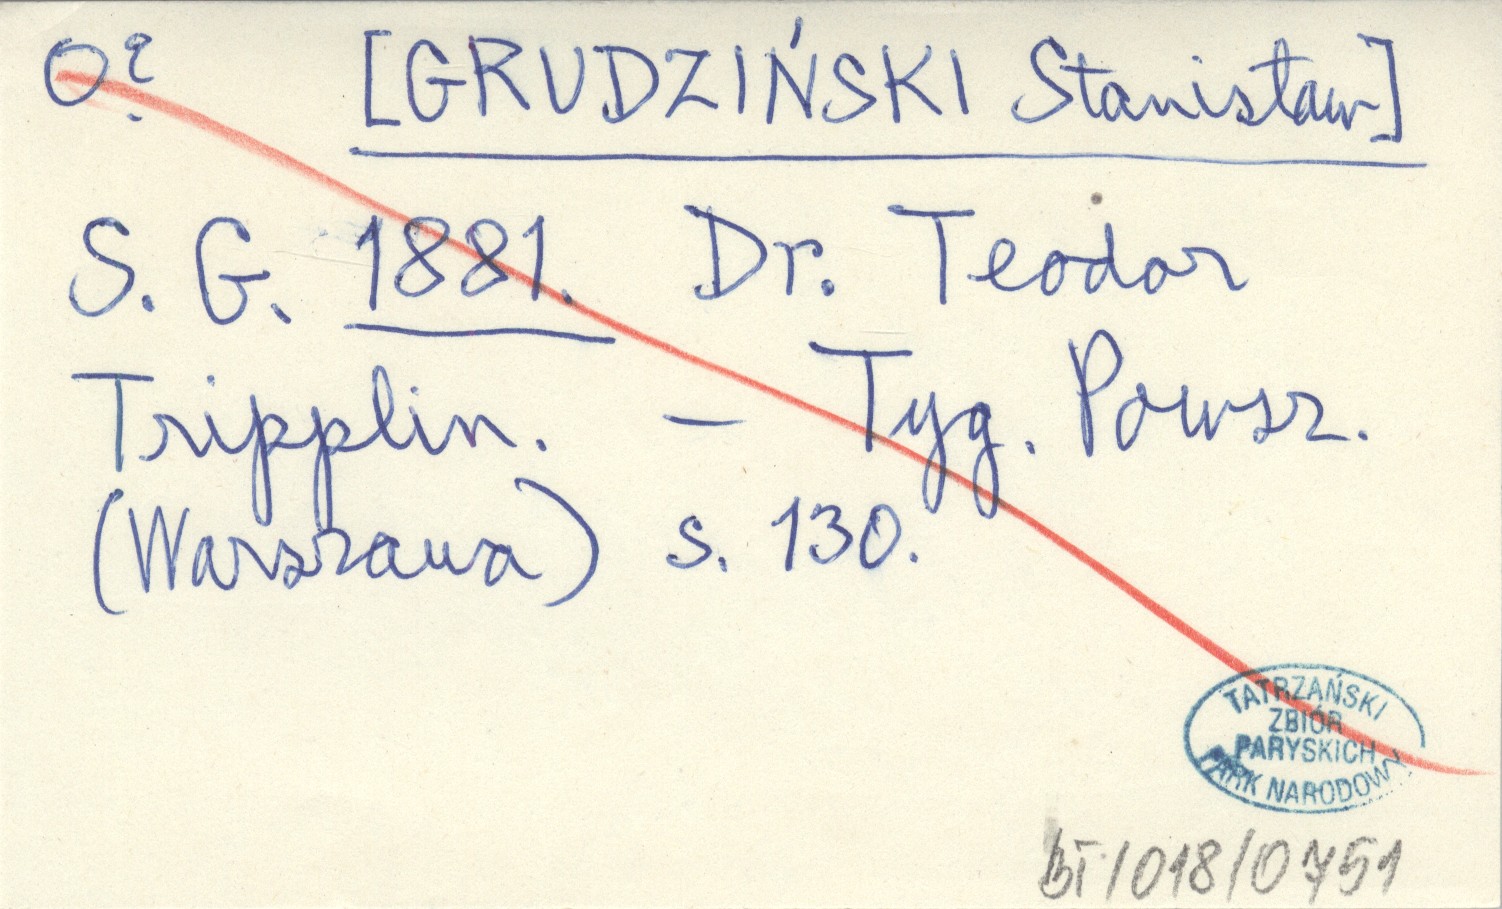 O? [GRUDZIŃSKI Stanisław]
S. G. 1881. Dr. Teodor
Tripplin. — Tyg. Powsz.
(Warszawa) s. 130.
TATRZAŃSKI
ZBIÓR
PARYSKICH
PARK NARODOWY
BT/018/0751